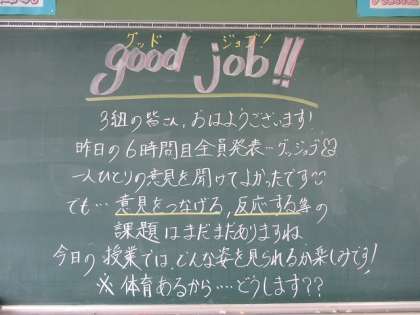 グッド ジョブ!
good job!!
3組の皆さん、おはようございます!
昨日の6時間目全員発表…グッジョブ
一人ひとりの意見を聞けてよかったです
でも…意見をつなげる、反応する等の
課題はまだまだありますね
今日の授業では、どんな姿を見られるか楽しみです!
※体育あるから…どうします??